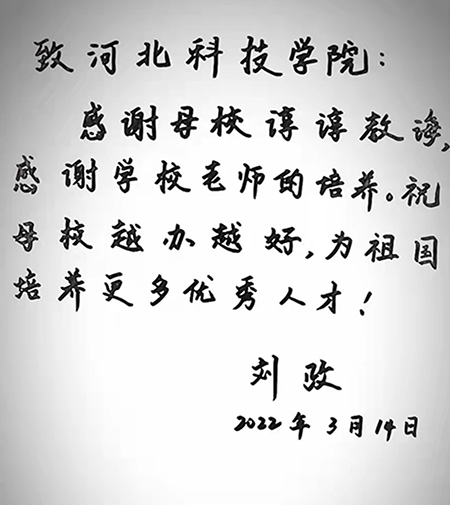 致河北科技学院：
感谢母校谆谆教诲，
感谢学校老师的培养。祝
母校越办越好，为祖国
培养更多优秀人才！
刘
2022年3月14日